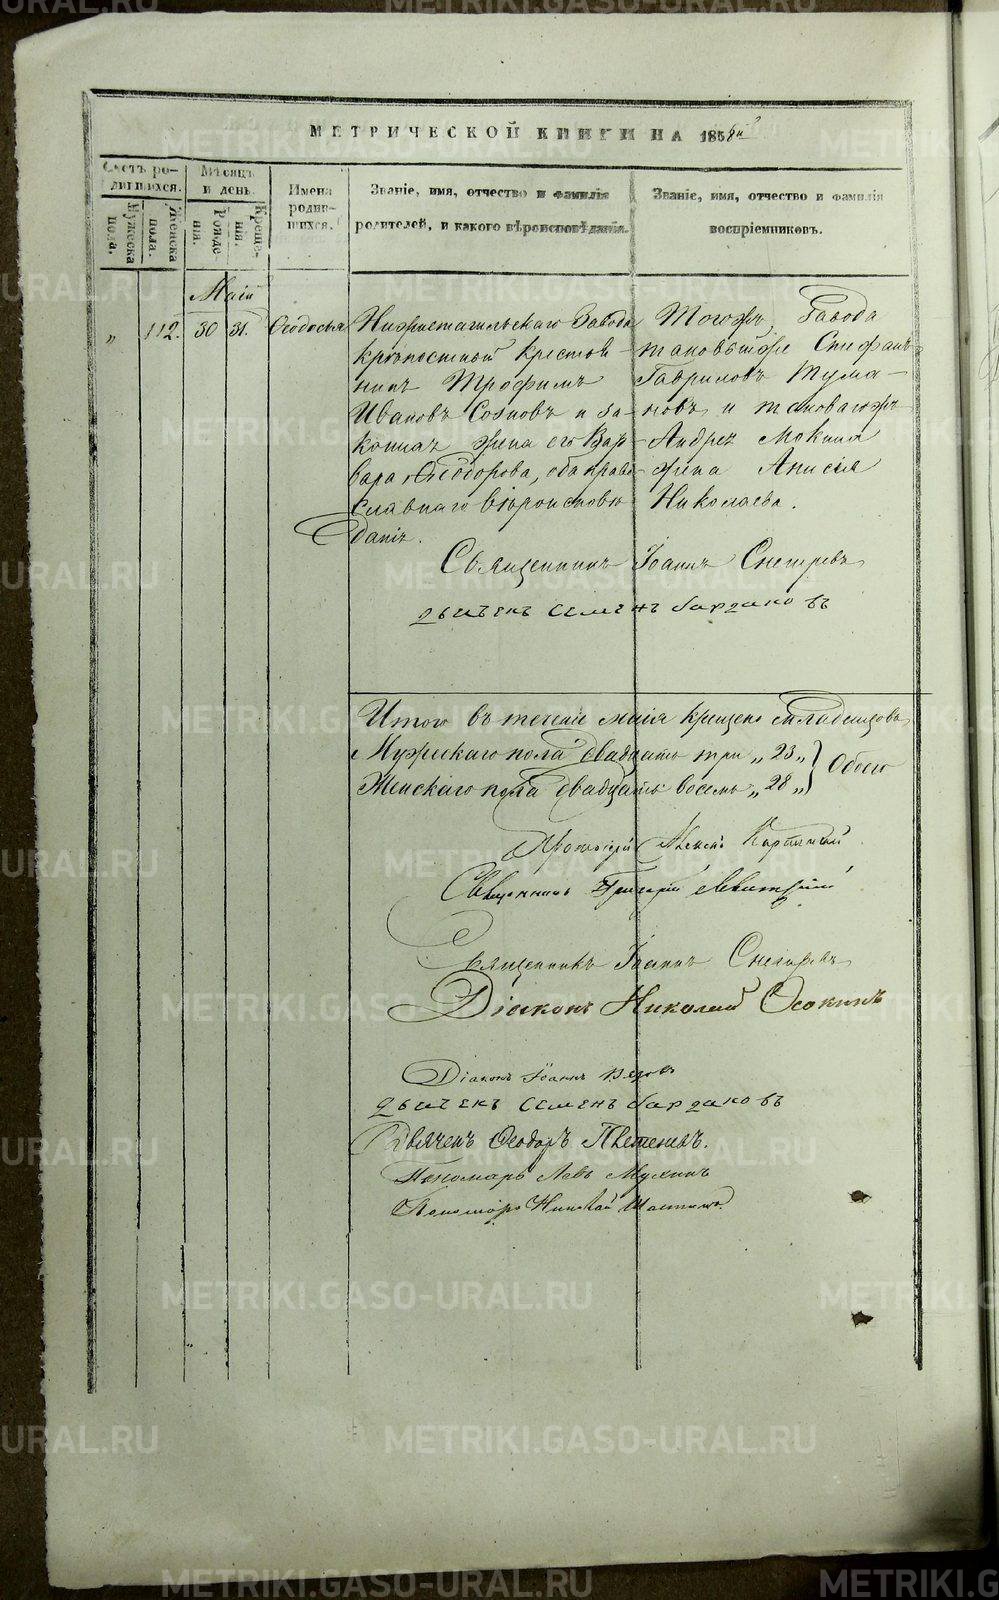 МЕТРИЧЕСКОЙ КНИГИ НА 1858й
Счетъ родившихся.
Мѣсяцъ и день.
Имена родившихся.
Званіе, имя, отчество и фамилія родителей, и какого вѣроисповѣданія.
Званіе, имя, отчество и фамилія воспріемниковъ.
Мужеска пола.
Женска пола.
Рожденія.
Крещенія.
Маій
„ 112. 30 31. Ѳеодосья
Нижнетагильскаго Завода
крѣпостный крестья-
нинъ Трофимъ
Ивановъ Созновъ и за-
конная жена его Вар-
вара Ѳеодорова, оба право-
славнаго вѣроисповѣ-
данія.
Тогожъ Завода
таковый же Стефанъ
Гавриловъ Тума-
новъ и таковагожъ
Андрея Мокина
жена Анисія
Николаева.
Священникъ Іоаннъ Снегиревъ
дьячекъ Семенъ бардаковъ
Итого въ теченіе маія крещено младенцовъ
Мужескаго пола двадцать три „23„
Женскаго пола двадцать восемь „28„ } Обоего
Протоіерей
Священникъ Григорій
Священникъ Іоаннъ Снегиревъ
Діаконъ Николай Осокинъ
Діаконъ Іоаннъ
дьячекъ Семенъ бардаковъ
Дьячекъ Ѳеодоръ
Пономарь Левъ Мухинъ
Пономарь Николай
METRIKI.GASO-URAL.RU